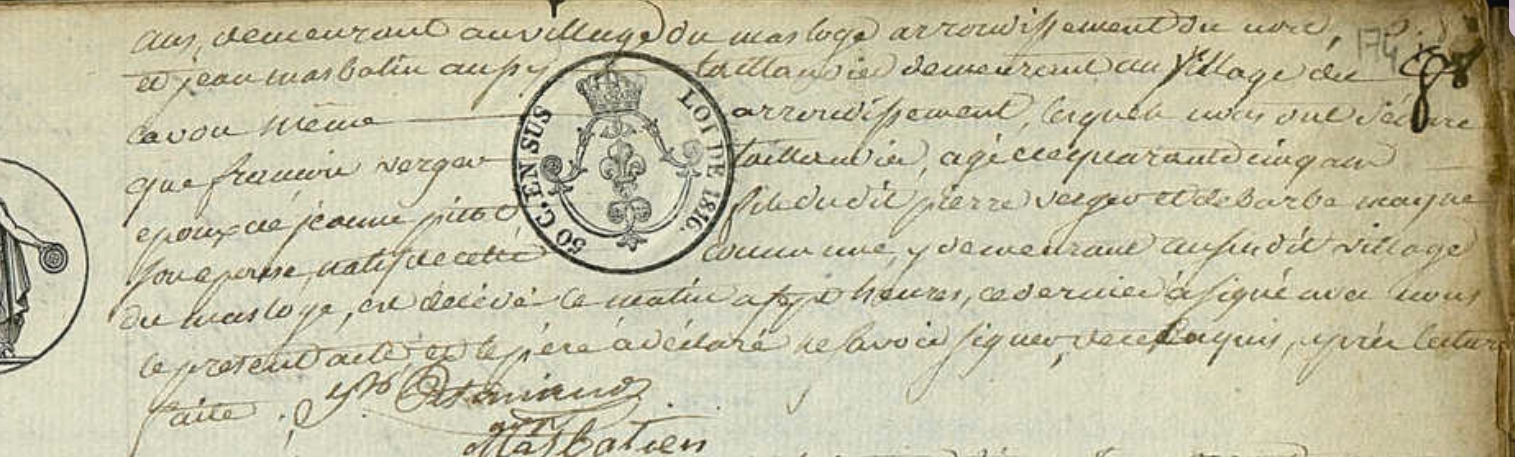 ans, demeurant au village du masloge arrondissement du nord,
174
et jean masbatin aussy taillandier demeurant au village du
cavou même arrondissement, lesquels nous ont déclaré
que françois verger taillandier, agé de quarante cinq ans
epoux de jeanne pitot fils dudit pierre verger et de barbe mayne
son epouse, natif de cette commune, y demeurant au susdit village
du masloge, est décédé ce matin a sept heures, ce dernier a signé avec nous
le present acte et le père a déclaré ne savoir signer, de ce requis, après lecture
faite.
Masbatien
50 C. EN SUS
LOI DE 1816.